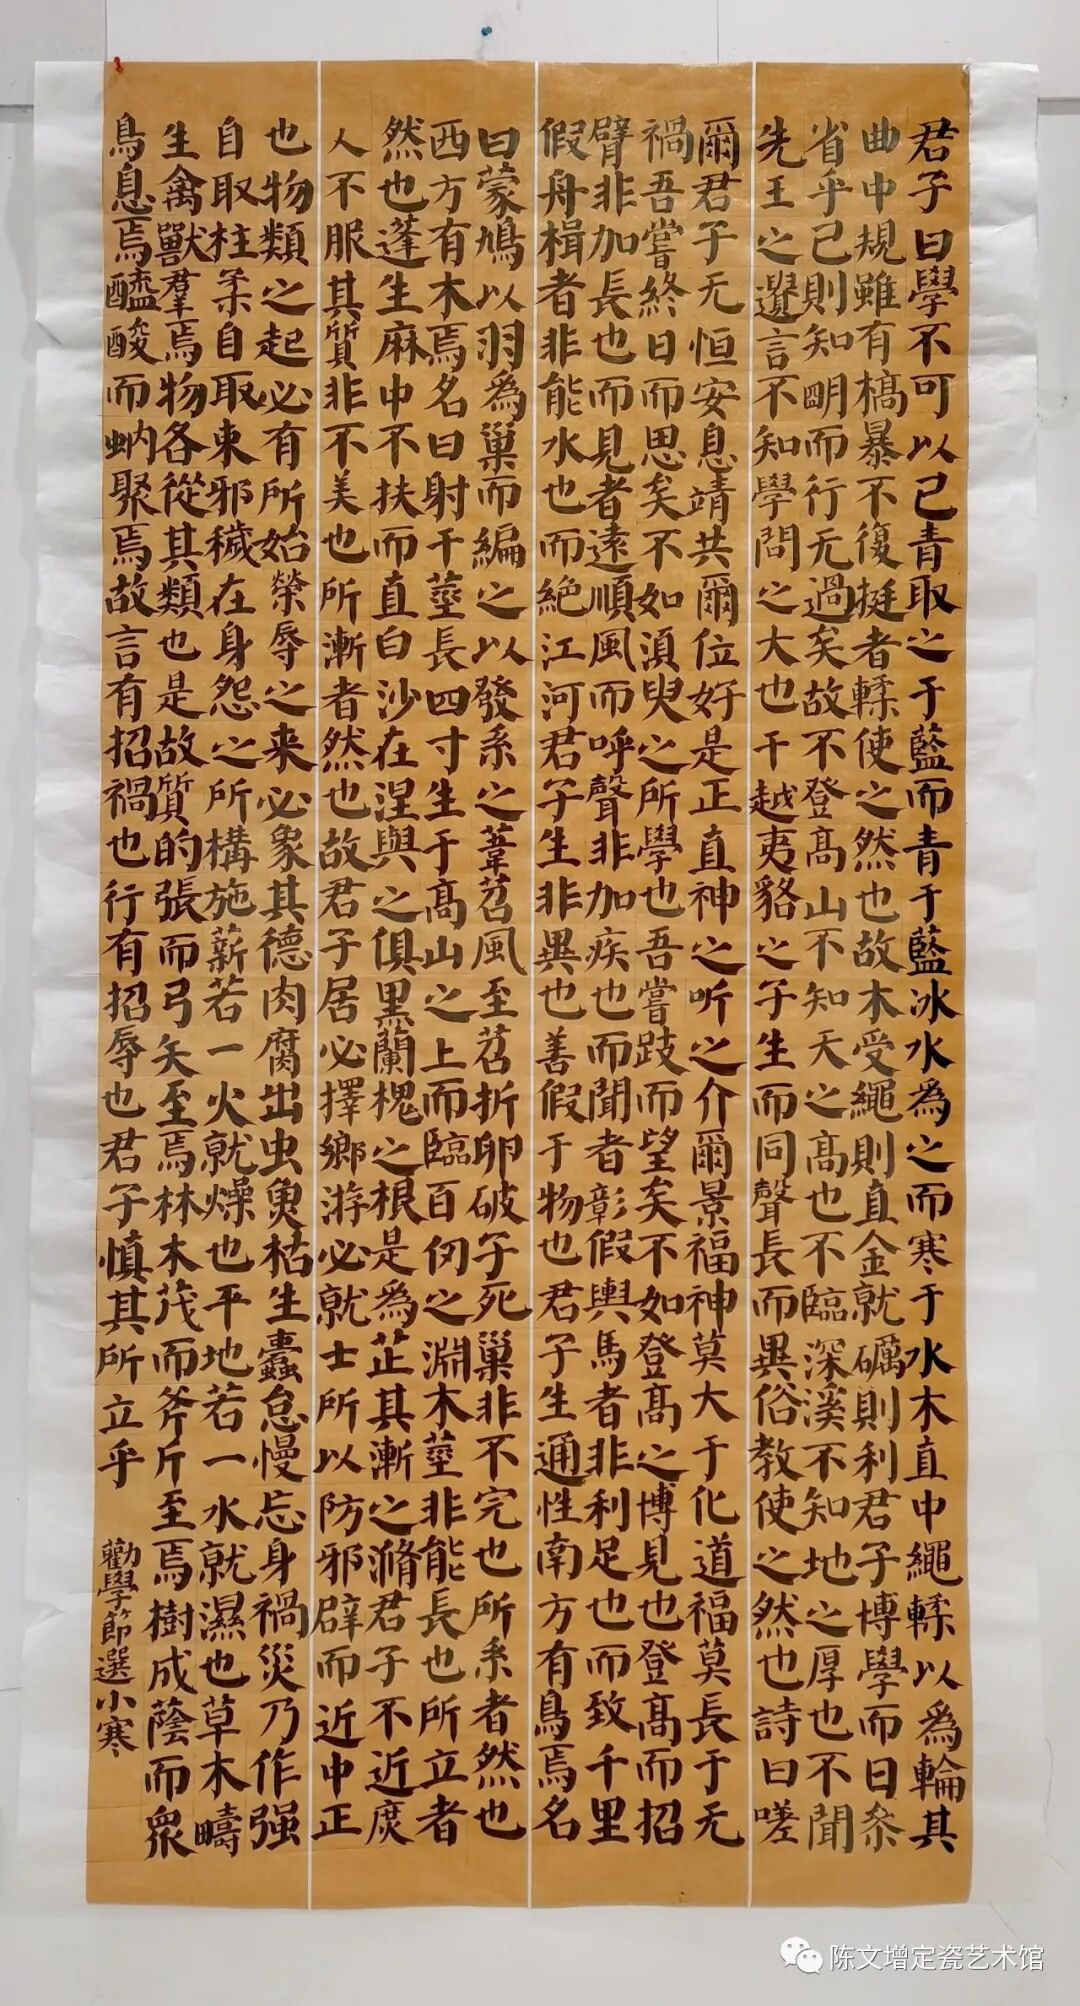 君子曰學不可以已青取之于藍而青于藍冰水為之而寒于水木直中繩輮以為輪其
曲中規雖有槁暴不復挺者輮使之然也故木受繩則直金就礪則利君子博學而日参
省乎己則知明而行无過矣故不登高山不知天之高也不臨深溪不知地之厚也不聞
先王之遺言不知學問之大也干越夷貉之子生而同聲長而異俗教使之然也詩曰嗟
爾君子无恒安息靖共爾位好是正直神之听之介爾景福神莫大于化道福莫長于无
禍吾嘗終日而思矣不如須臾之所學也吾嘗跂而望矣不如登高之博見也登高而招
臂非加長也而見者遠順風而呼聲非加疾也而聞者彰假輿馬者非利足也而致千里
假舟楫者非能水也而絕江河君子生非異也善假于物也君子生通性南方有鳥焉名
曰蒙鳩以羽為巢而編之以發系之葦苕風至苕折卵破子死巢非不完也所系者然也
西方有木焉名曰射干莖長四寸生于高山之上而臨百仞之淵木莖非能長也所立者
然也蓬生麻中不扶而直白沙在涅與之俱黑蘭槐之根是為芷其漸之滫君子不近庶
人不服其質非不美也所漸者然也故君子居必擇鄉游必就士所以防邪辟而近中正
也物類之起必有所始榮辱之来必象其德肉腐出虫魚枯生蠹怠慢忘身禍災乃作强
自取柱柔自取束邪穢在身怨之所構施薪若一火就燥也平地若一水就濕也草木疇
生禽獸羣焉物各從其類也是故質的張而弓矢至焉林木茂而斧斤至焉樹成蔭而衆
鳥息焉醯酸而蚋聚焉故言有招禍也行有招辱也君子慎其所立乎
勸學節選小寒
陈文增定瓷艺术馆